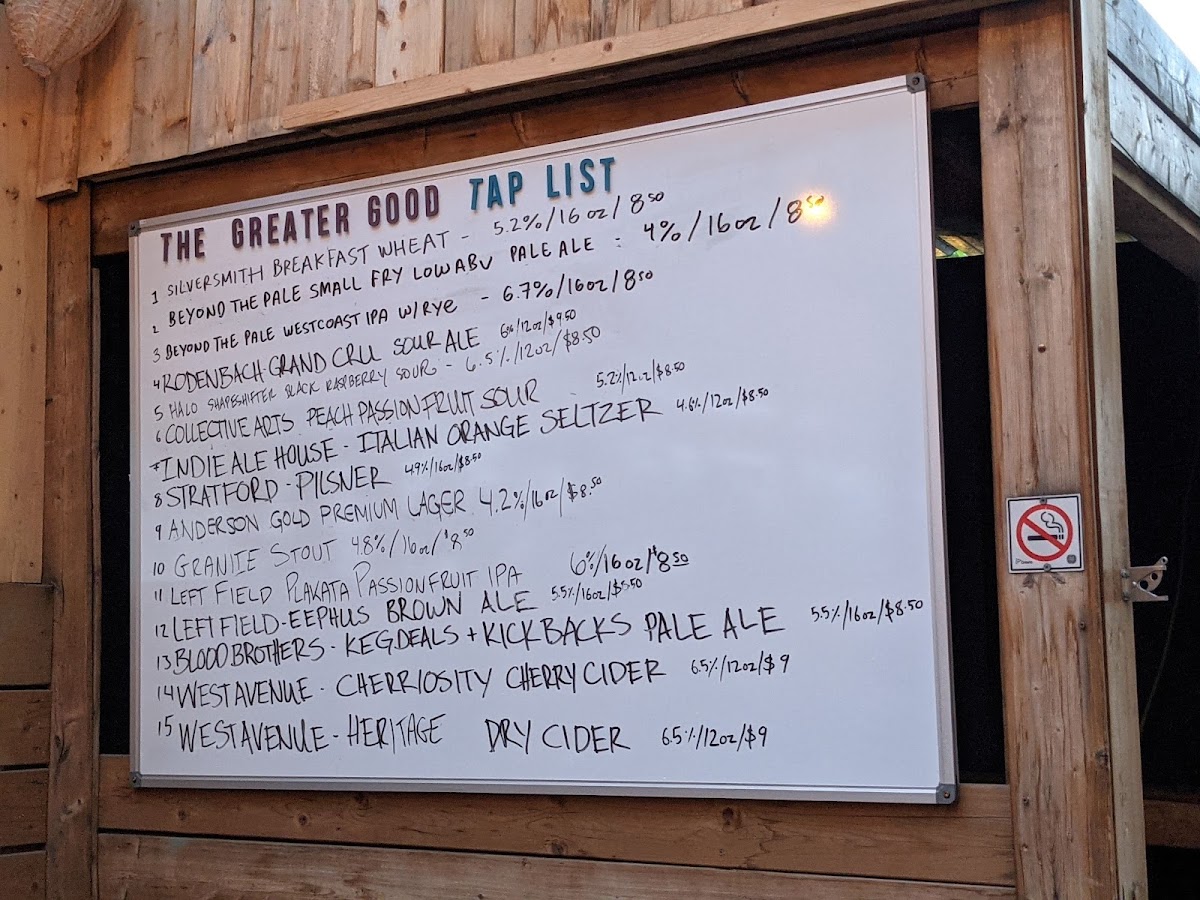 THE GREATER GOOD TAP LIST
1 SILVERSMITH BREAKFAST WHEAT - 5.2%/16oz/8.50
2 BEYOND THE PALE SMALL FRY LOW ABV PALE ALE - 4%/16oz/8.50
3 BEYOND THE PALE WESTCOAST IPA W/RYE - 6.7%/16oz/850
4 RODENBACH GRAND CRU SOUR ALE 6%/12oz/$9.50
5 HALO SHAPESHIFTER BLACK RASPBERRY SOUR - 6.5%/12oz/$8.50
6 COLLECTIVE ARTS PEACH PASSIONFRUIT SOUR 5.2%/12oz/$8.50
7 INDIE ALE HOUSE - ITALIAN ORANGE SELTZER 4.6%/12oz/$8.50
8 STRATFORD - PILSNER 4.9%/16oz/$8.50
9 ANDERSON GOLD PREMIUM LAGER 4.2%/16oz/$8.50
10 GRANITE STOUT 4.8%/16oz/$850
11 LEFT FIELD PLAKATA PASSIONFRUIT IPA 6%/16oz/$8.50
12 LEFT FIELD - EEPHUS BROWN ALE 5.5%/16oz/
13 BLOOD BROTHERS - KEG DEALS + KICKBACKS PALE ALE 5.5%/16oz/$8.50
14 WEST AVENUE - CHERRIOSITY CHERRY CIDER 6.5%/12oz/$9
15 WEST AVENUE - HERITAGE DRY CIDER 6.5%/12oz/$9